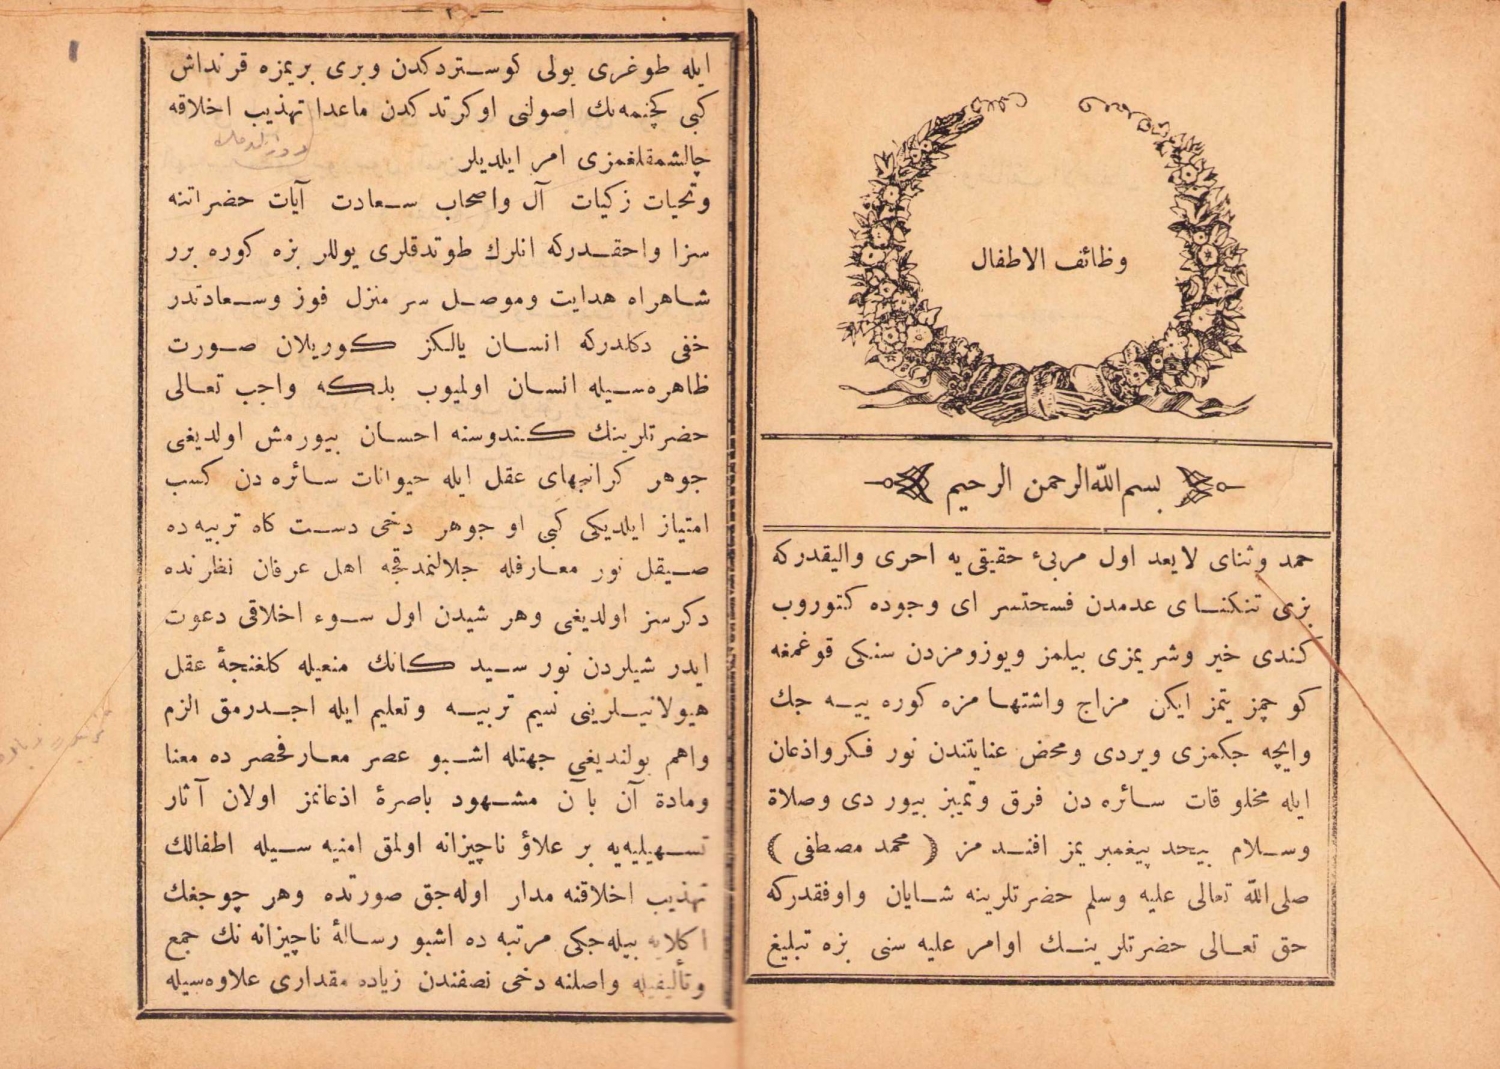 وظائف الاطفال
بسم الله الرحمن الرحیم
حمد وثنای لایعد اول مربیٔ حقیقی یه احری والیقدرکه
بزی تنکنای عدمدن فسحتسر ای وجوده کتوروب
کندی خیر وشر یمزی بیلمز ویوزومزدن سنکی قوغمغه
کو جمز یتمز ایکن مزاج واشتها مزه کوره ییه جك
وایچه جکمزی ویردی ومحض عنایتندن نور فکر واذعان
ایله مخلو قات سائره دن فرق وتمییز بیور دی وصلاة
وسلام بیحد پیغمبر یمز افند مز ( محمد مصطفی )
صلی الله تعالی علیه وسلم حضرتلرینه شایان واوفقدرکه
حق تعالی حضرتلر ینك اوامر علیه سنی بزه تبلیغ
ـ ٢ ـ
ایله طوغری یولی کوستردکدن وبری بریمزه قرنداش
کبی کچنمه نك اصولنی اوکرتد کدن ماعدا تهذیب اخلاقه
چالشمقلغمزی امر ایلدیلر
وتحیات زکیات آل واصحاب سعادت آیات حضراتنه
سزا واحقدرکه انلرك طوتدقلری یوللر بزه کوره برر
شاهراه هدایت وموصل سر منزل فوز وسعادتدر
خفی دکلدرکه انسان یالکز کوریلان صورت
ظاهره سیله انسان اولمیوب بلکه واجب تعالی
حضرتلرینك کندوسنه احسان بیورمش اولدیغی
جوهر کرانبهای عقل ایله حیوانات سائره دن کسب
امتیاز ایلدیکی کبی او جوهر دخی دست کاه تربیه ده
صیقل نور معارفله جلالنمدقجه اهل عرفان نظرنده
دکرسز اولدیغی وهر شیدن اول سوء اخلاقی دعوت
ایدر شیلردن نور سید کانك منعیله کلغنجهٔ عقل
هیولانیلرینی نسیم تربیه وتعلیم ایله اجدرمق الزم
واهم بولندیغی جهتله اشبو عصر معارفحصر ده معنا
ومادة آن بآ ن مشهود باصرهٔ اذعانمز اولان آثار
تسهیلیه یه بر علاؤ ناچیزانه اولمق امنیه سیله اطفالك
تهذیب اخلاقنه مدار اوله جق صورتده وهر چوجغك
ا کلایه بیله جکی مرتبه ده اشبو رسالهٔ ناچیزانه نك جمع
وتألیفیله واصلنه دخی نصفندن زیاده مقداری علاوه سیله